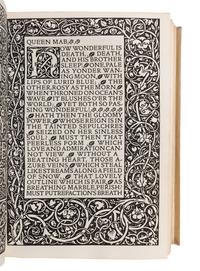 QUEEN MAB
HOW WONDERFUL IS
DEATH, DEATH,
AND HIS BROTHER
SLEEP! ONE, PALE
AS YONDER WAN-
ING MOON, WITH
LIPS OF LURID BLUE; THE
OTHER, ROSY AS THE MORN,
WHEN THRONED ON OCEAN'S
WAVE, IT BLUSHES O'ER THE
WORLD: YET BOTH SO PAS-
SING WONDERFUL!
HATH THEN THE GLOOMY
POWER WHOSE REIGN IS IN
THE TAINTED SEPULCHRES
SEIZED ON HER SINLESS
SOUL? MUST THEN THAT
PEERLESS FORM WHICH
LOVE AND ADMIRATION CAN-
NOT VIEW WITHOUT A
BEATING HEART, THOSE AZ-
URE VEINS WHICH STEAL
LIKE STREAMS ALONG A FIELD
OF SNOW, THAT LOVELY
OUTLINE WHICH IS FAIR AS
BREATHING MARBLE, PERISH?
MUST PUTREFACTION'S BREATH